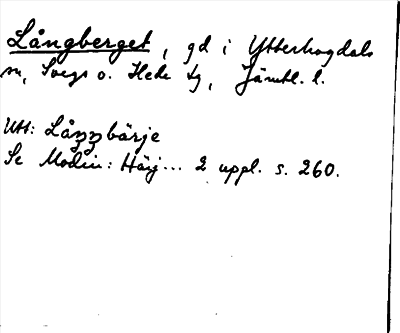 Långberget, gd i Ytterhogdals
sn, Svegs o. Hede tg, Jämtl. l.
Utt: Låŋŋbärje
Se Modin: Härj... 2 uppl. s. 260.